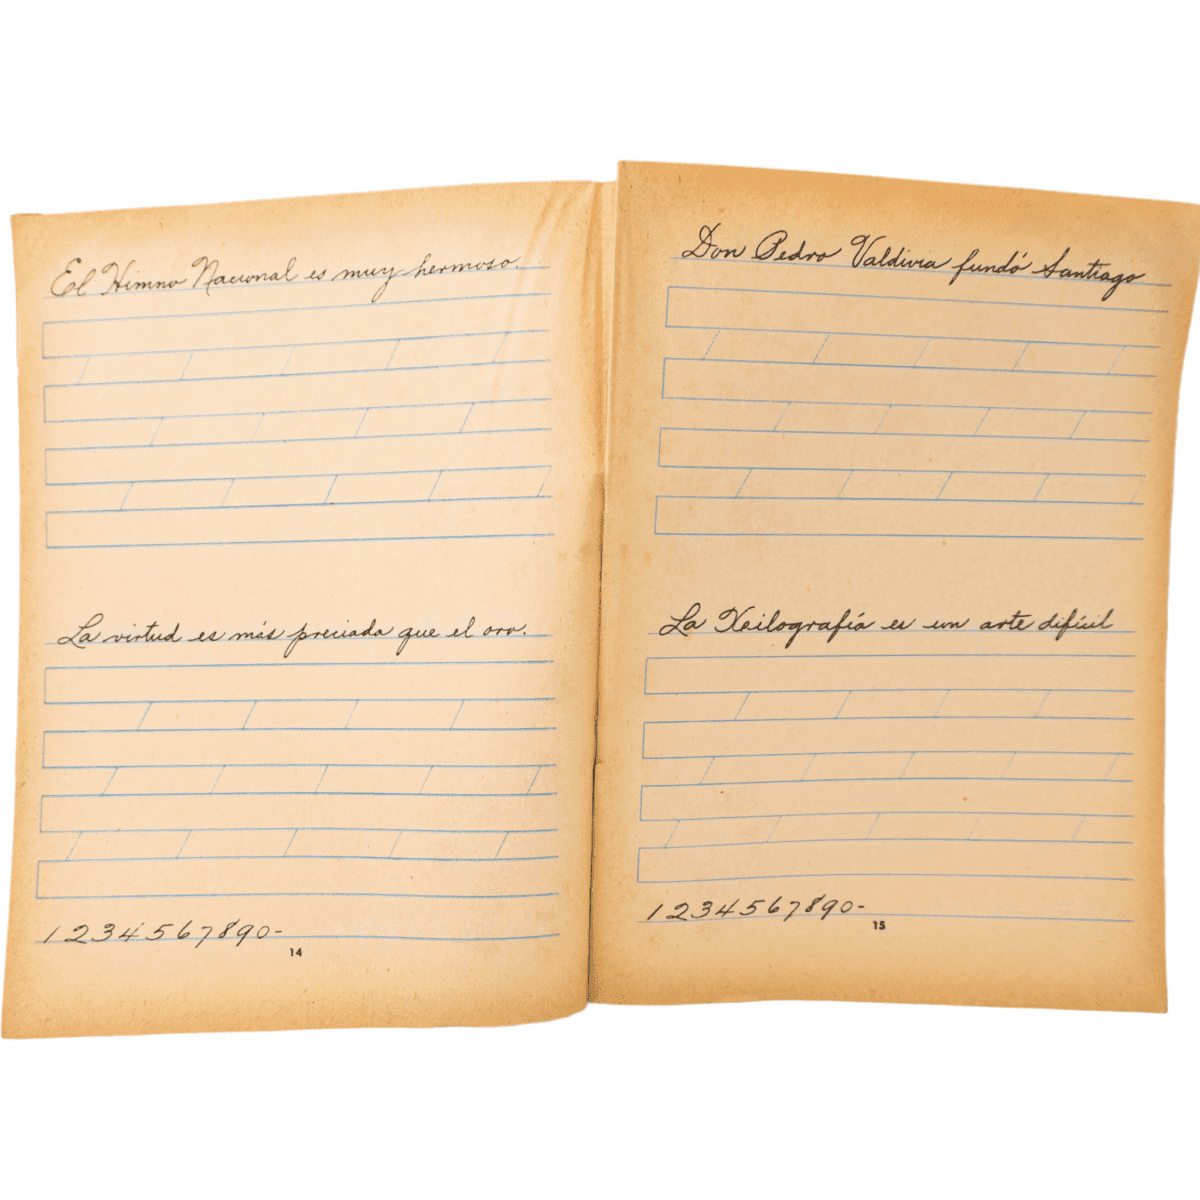 El Himno Nacional es muy hermoso.
La virtud es más preciada que el oro.
1234567890-
14
Don Pedro Valdivia fundó Santiago
La Xeilografía es un arte difícil
1234567890-
15